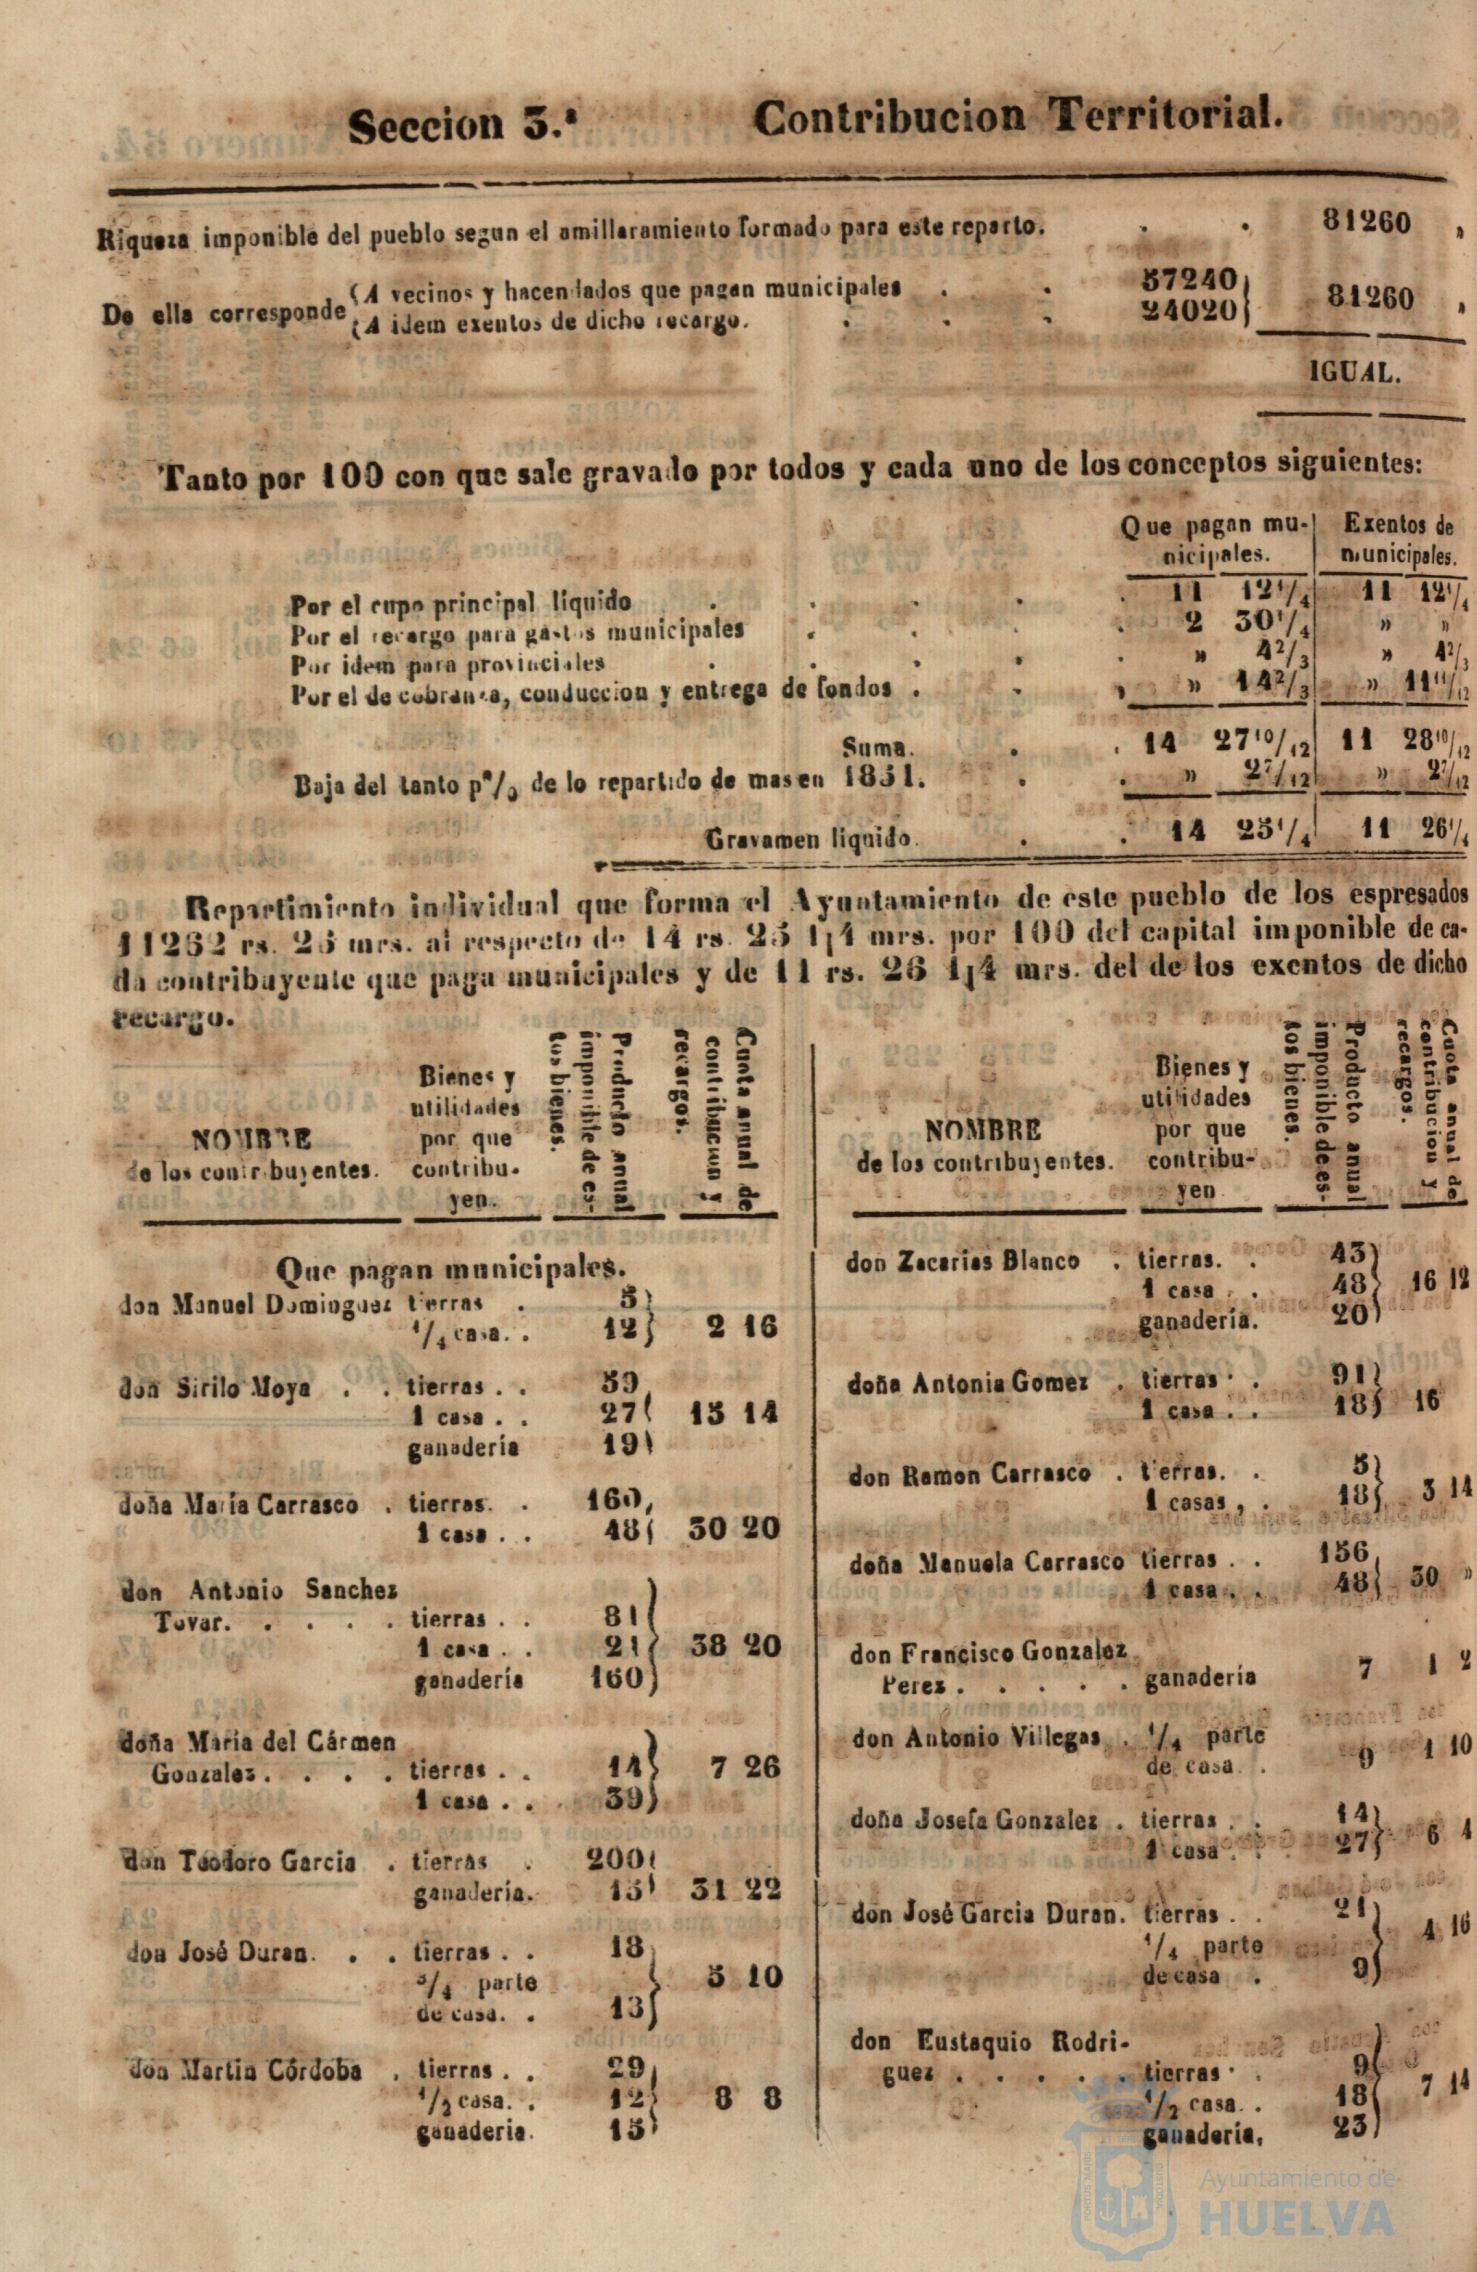 Seccion 3.ª Contribucion Territorial.
Riqueza imponible del pueblo segun el amillaramiento formado para este reparto. . . 81260 ,
De ella corresponde (A vecinos y hacendados que pagan municipales . . 57240) 81260 ,
(A idem exentos de dicho recargo. . . . 24020)
IGUAL.
Tanto por 100 con que sale gravado por todos y cada uno de los conceptos siguientes:
Que pagan mu- | Exentos de
nicipales. | municipales.
Por el cupo principal líquido . . . . . 11 12 1/4 | 11 12 1/4
Por el recargo para gastos municipales . . . . 2 30 1/4 | » »
Por idem para provinciales . . . . . » 4 2/3 | » 4 2/3
Por el de cobranza, conduccion y entrega de fondos . . , » 14 2/3 | » 11 11/12
Suma. . . 14 27 10/12 | 11 28 10/12
Baja del tanto p%, de lo repartido de mas en 1851. . . » 2 7/12 | » 2 7/12
Gravamen líquido. . . 14 25 1/4 | 11 26 1/4
Repartimiento individual que forma el Ayuntamiento de este pueblo de los espresados
11262 rs. 25 mrs. al respecto de 14 rs. 25 1¡4 mrs. por 100 del capital imponible de ca-
da contribuyente que paga municipales y de 11 rs. 26 1¡4 mrs. del de los exentos de dicho
recargo.
NOMBRE
de los contribuyentes.
Bienes y
utilidades
por que
contribu-
yen.
Producto anual
imponible de es-
tos bienes.
Cuota anual de
contribucion y
recargos.
Que pagan municipales.
don Manuel Dominguez tierras . 5)
1/4 casa. . 12) 2 16
don Sirilo Moya . . tierras . . 59
1 casa . . 27( 15 14
ganadería 19)
doña María Carrasco . tierras. . 160,
1 casa . . 48( 30 20
don Antonio Sanchez
Tovar. . . . . tierras . . 81)
1 casa . . 21 38 20
ganadería 160)
doña María del Cármen
Gonzalez. . . . . tierras . . 14) 7 26
1 casa . . 39)
don Teodoro Garcia . tierras . 200(
ganadería. 15) 31 22
don José Duran. . . tierras . . 18
3/4 parte 5 10
de casa. . 13)
don Martin Córdoba . tierras . . 29,
1/2 casa. . 12) 8 8
ganaderia. 15)
NOMBRE
de los contribuyentes.
Bienes y
utilidades
por que
contribu-
yen
Producto anual
imponible de es-
tos bienes.
Cuota anual de
contribucion y
recargos.
don Zacarias Blanco . tierras. . 43)
1 casa . . 48) 16 12
ganadería. 20)
doña Antonia Gomez . tierras . 91)
1 casa . . 18) 16
don Ramon Carrasco . tierras. . 5)
1 casas , . 18) 3 14
doña Manuela Carrasco tierras . . 156,
1 casa . . 48) 30 »
don Francisco Gonzalez
Perez . . . . . ganadería 7 1 2
don Antonio Villegas . 1/4 parte
de casa . 9 1 10
doña Josefa Gonzalez . tierras . . 14)
1 casa . . 27) 6 4
don José Garcia Duran. tierras . . 21)
1/4 parte 4 16
de casa . 9)
don Eustaquio Rodri-
guez . . . . . tierras . . 9
1/2 casa. . 18 7 14
ganadería, 23)
Ayuntamiento de
HUELVA